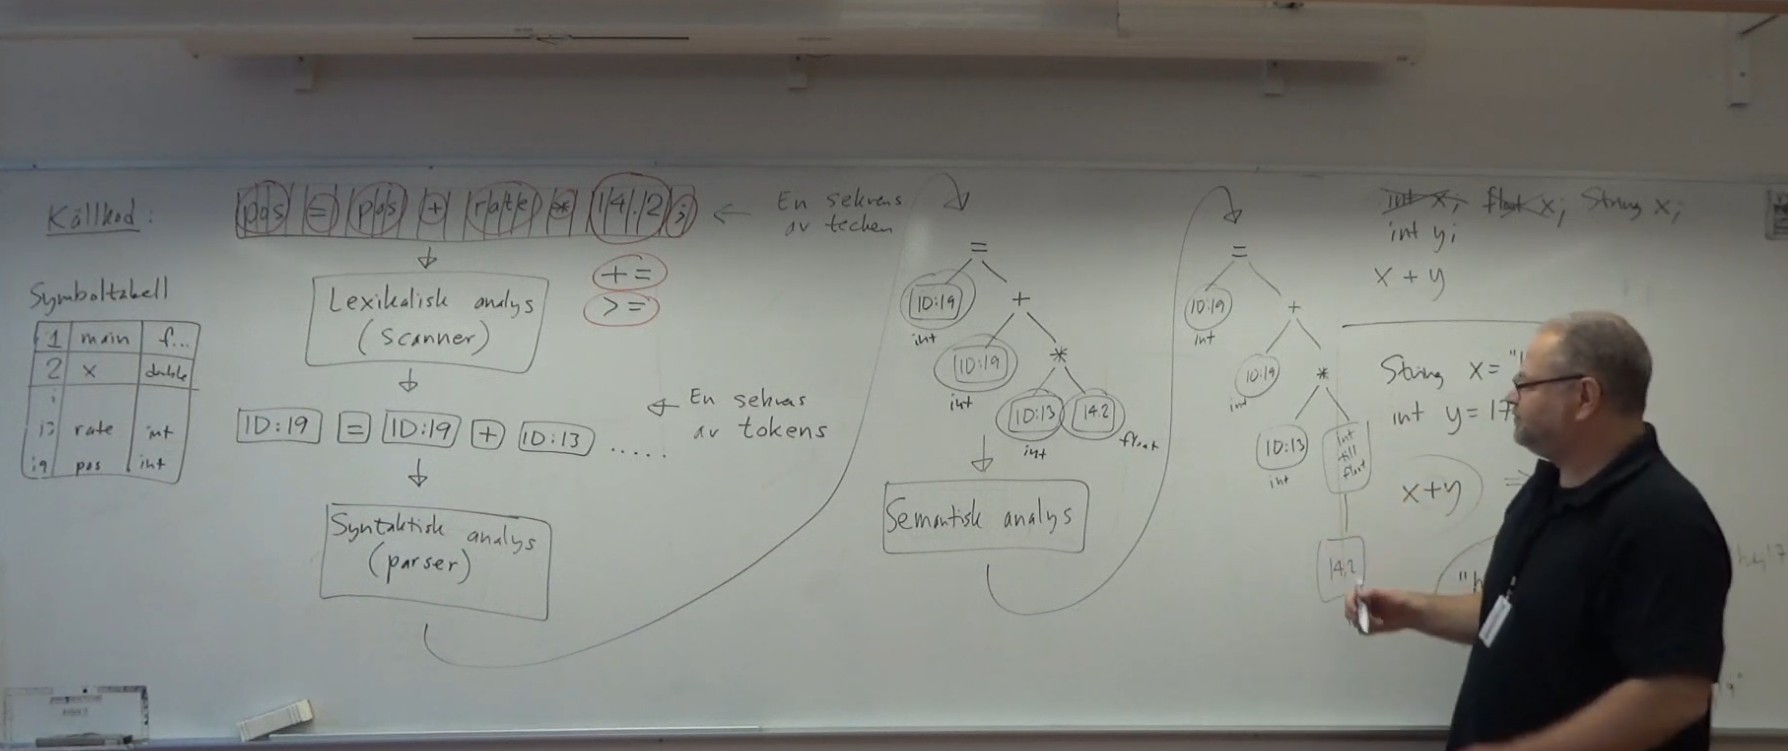 Källkod:
pos = pos + rate * 14.2;
← En sekvens
av tecken
Symboltabell
1 main f...
2 x double
:
13 rate int
19 pos int
Lexikalisk analys
(scanner)
+=
>=
ID:19 = ID:19 + ID:13 .....
← En sekvens
av tokens
Syntaktisk analys
(parser)
=
ID:19
int
+
ID:19
int
*
ID:13
int
14.2
float
Semantisk analys
=
ID:19
int
+
ID:19
int
*
ID:13
int
int
till
float
14.2
int x; float x; String x;
int y;
x + y
String x = "h
int y = 17
x+y =>
"h